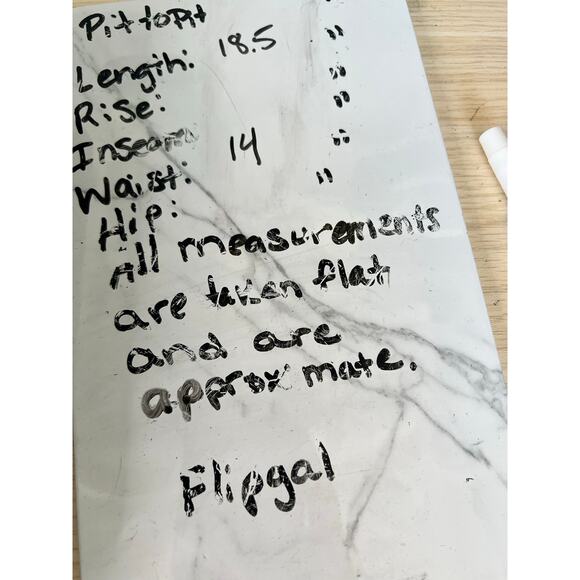 Pit to Pit "
Length: 18.5 "
Rise: "
Inseam "
Waist: 14 "
Hip: "
All measurements
are taken flat
and are
approximate.
Flipgal